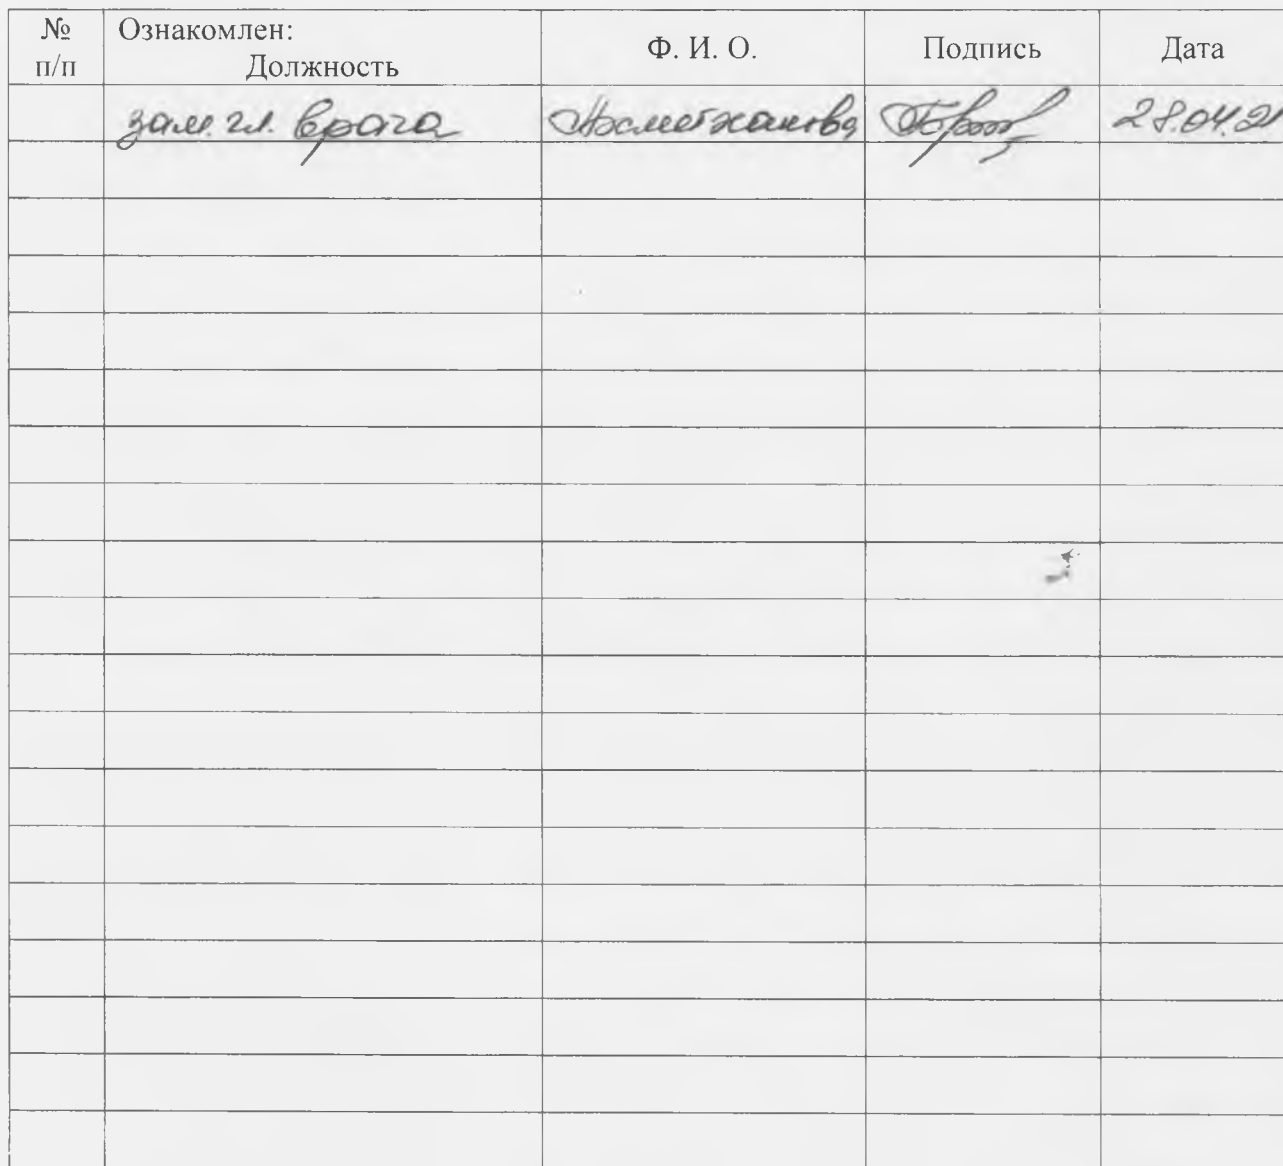 № п/п
Ознакомлен:
Должность
Ф. И. О.
Подпись
Дата
зам. гл. врача
28.04.21